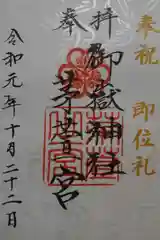 奉祝 即位礼
奉拝
御嶽神社
茅萱宮
令和元年十月二十二日